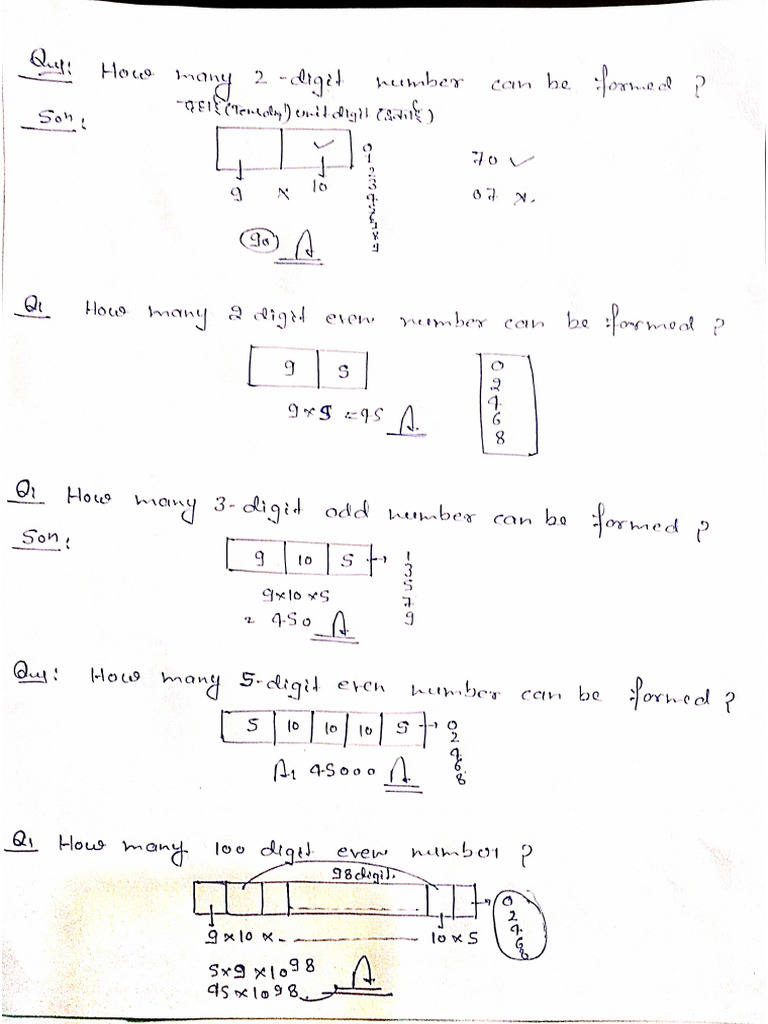 Que: How many 2-digit number can be formed ?
Son:
दहाई unit digit (इकाई)
9 x 10
0
1
2
3
4
5
6
7
8
9
70 ✓
07 x.
90 A
Q1 How many 2 digit even number can be formed ?
9 5
9x5 = 45 A.
0
2
4
6
8
Q1 How many 3-digit odd number can be formed ?
Son:
9 10 5 →
1
3
5
7
9
9x10x5
= 450 A
Que: How many 5-digit even number can be formed ?
5 10 10 10 5 →
0
2
4
6
8
A1 45000 A
Q1 How many 100 digit even number ?
98 digit.
9x10x- 10x5
0
2
4
6
8
5x9x10 98
45x10 98 A